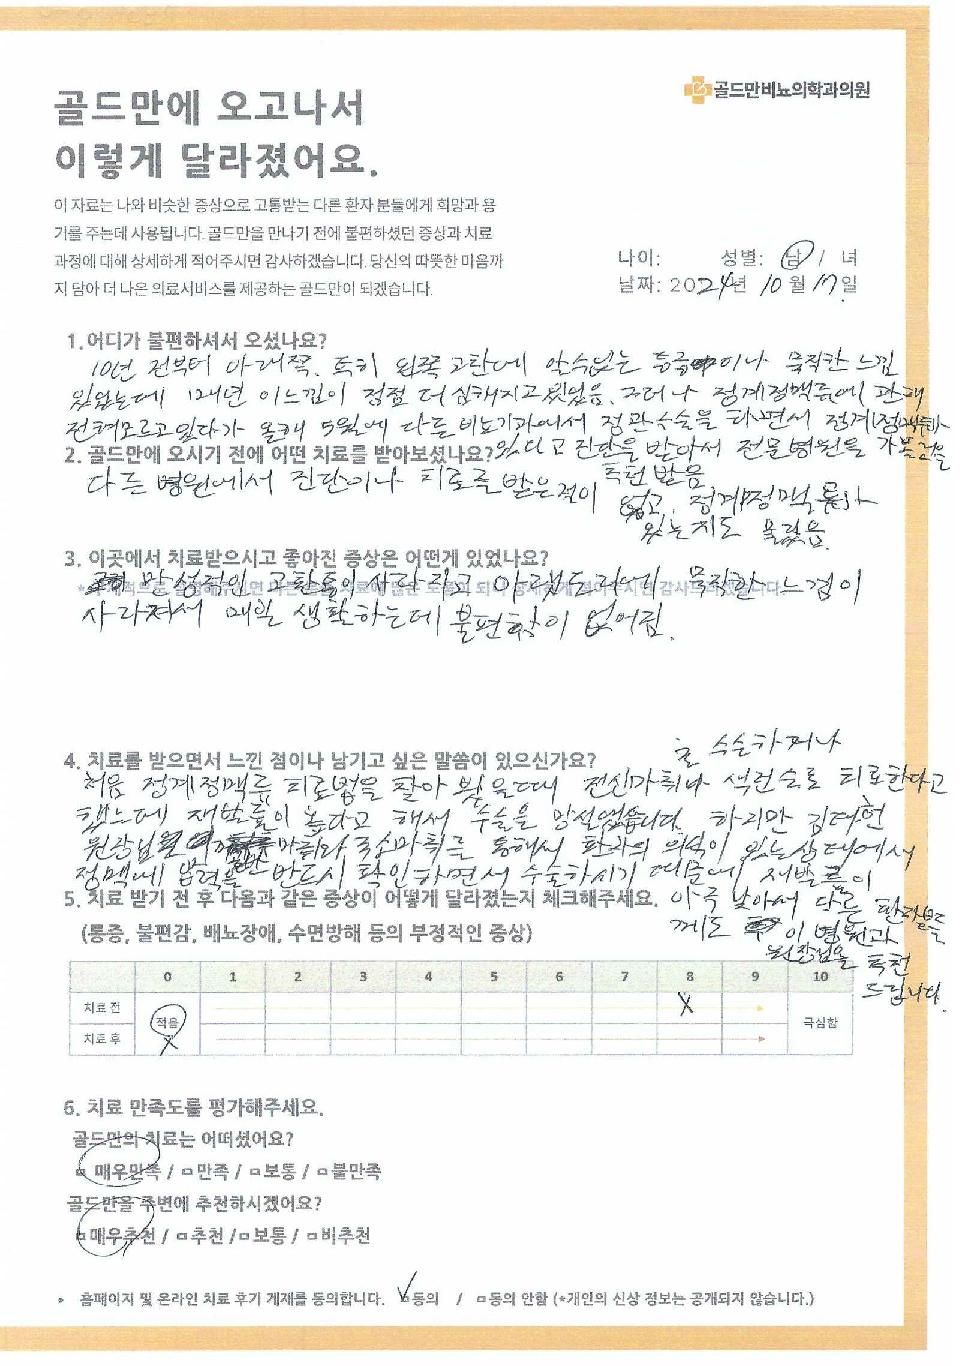 골드만비뇨의학과의원
골드만에 오고나서
이렇게 달라졌어요.
이 자료는 나와 비슷한 증상으로 고통받는 다른 환자 분들에게 희망과 용
기를 주는데 사용됩니다. 골드만을 만나기 전에 불편하셨던 증상과 치료
과정에 대해 상세하게 적어주시면 감사하겠습니다. 당신의 따뜻한 마음까
지 담아 더 나은 의료서비스를 제공하는 골드만이 되겠습니다.
나이: 성별: 남 / 녀
날짜: 2024년 10월 17일
1. 어디가 불편하셔서 오셨나요?
10년 전부터 아래쪽, 특히 왼쪽 고환에 알수없는 통증이나 묵직한 느낌
있었는데 1,2년 이느낌이 점점 더 심해지고 있었음. 그러나 정계정맥류에 관해
전혀모르고있다가 올해 5월에 다른 비뇨기과에서 정관수술을 하면서 정계정맥류가
있다고 진단을 받아서 전문병원을
추천 받음
2. 골드만에 오시기 전에 어떤 치료를 받아보셨나요?
다른 병원에서 진단이나 치료를 받은적이 없고, 정계정맥류가
있는지도 몰랐음.
3. 이곳에서 치료받으시고 좋아진 증상은 어떤게 있었나요?
만성적인 고환통이 사라지고 아랫도리에 묵직한 느낌이
사라져서 매일 생활하는데 불편함이 없어짐.
4. 치료를 받으면서 느낀 점이나 남기고 싶은 말씀이 있으신가요?
로 수술하거나
처음 정계정맥류 치료법을 찾아 봤을때 전신마취나 색전술로 치료한다고
했는데 재발률이 높다고 해서 수술을 망설였습니다. 하지만 김태헌
원장님 마취와 국소마취를 통해서 환자의 의식이 있는상태에서
정맥에 압력을 반드시 확인하면서 수술하시기 때문에 재발률이
아주 낮아서 다른 환자분들
께도 이 병원과
원장님을 추천
드립니다.
5. 치료 받기 전 후 다음과 같은 증상이 어떻게 달라졌는지 체크해주세요.
(통증, 불편감, 배뇨장애, 수면방해 등의 부정적인 증상)
0 1 2 3 4 5 6 7 8 9 10
치료 전 X
적음 극심함
치료 후 X
6. 치료 만족도를 평가해주세요.
골드만의 치료는 어떠셨어요?
□ 매우만족 / □ 만족 / □ 보통 / □ 불만족
골드만을 주변에 추천하시겠어요?
□ 매우추천 / □ 추천 / □ 보통 / □ 비추천
▸ 홈페이지 및 온라인 치료 후기 게재를 동의합니다. □ 동의 / □ 동의 안함 (*개인의 신상 정보는 공개되지 않습니다.)